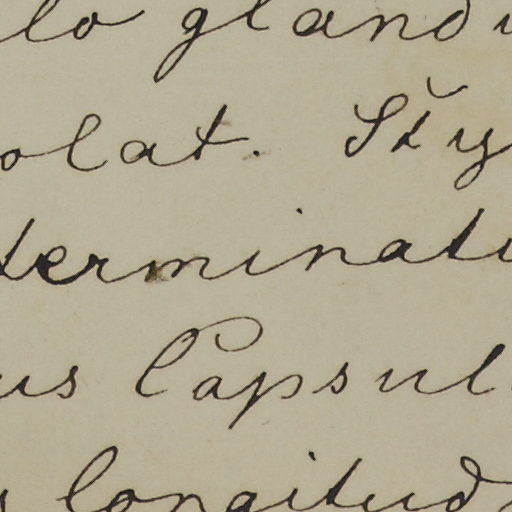 lo gland
olat. Sty
terminati
us Capsul
longitud